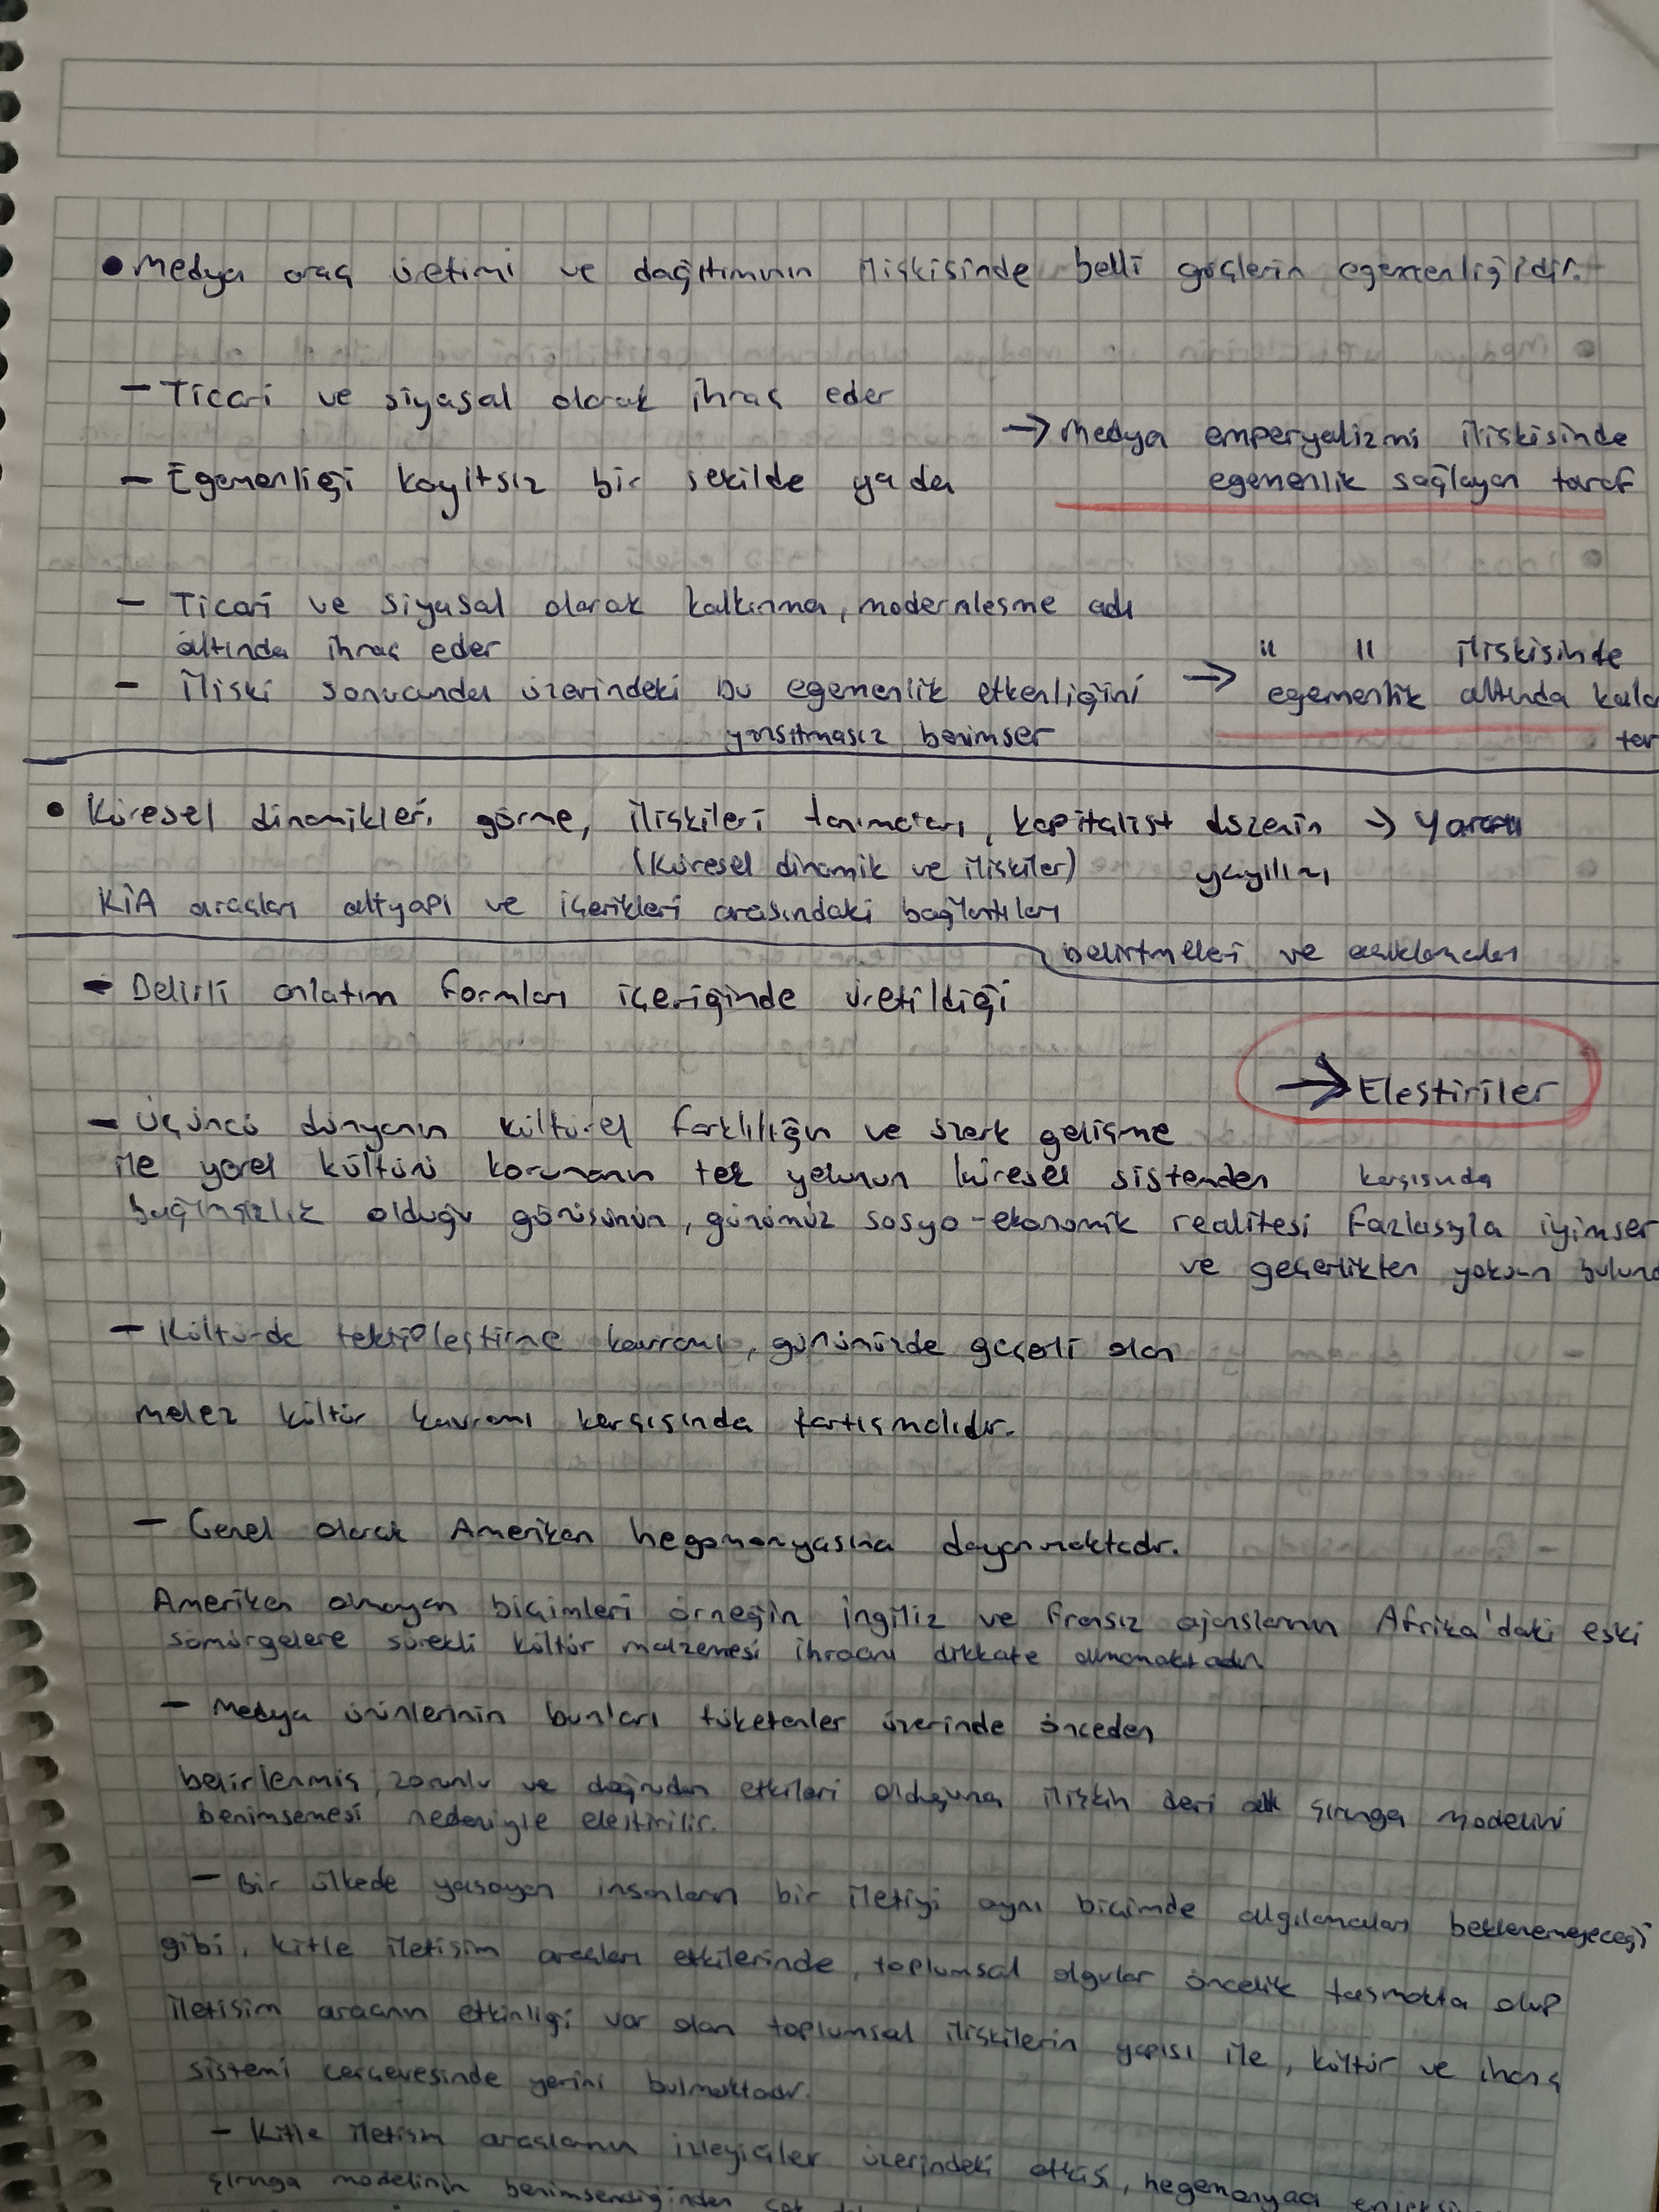 • Medya araç üretimi ve dağıtımının ilişkisinde belli güçlerin egemenliğidir.
- Ticari ve siyasal olarak ihraç eder
- Egemenliği kayıtsız bir şekilde yada
→ Medya emperyalizmi ilişkisinde
egemenlik sağlayan taraf
- Ticari ve siyasal olarak kalkınma, modernleşme adı
altında ihraç eder
- İliski sonucunda üzerindeki bu egemenlik etkenliğini
yansıtmasız benimser
→ " " iliskisinde
egemenlik altında
• Küresel dinamikleri görme, ilişkileri tanımaları, kapitalist düzenin → yararı
(Küresel dinamik ve ilişkiler) yayılımı
KİA araçları altyapı ve içerikleri arasındaki bağlantıları
belirtmeleri ve açıklamaları
- Belirli anlatım formları içeriğinde üretildiği
→ Elestiriler
- Üçüncü dünyanın kültürel farklılığın ve özerk gelişme
ile yerel kültürü korumanın tek yolunun küresel sistemden karşısında
bağımsızlık olduğu görüsünün, günümüz sosyo-ekonomik realitesi fazlasıyla iyimser
ve geçerlikten yoksun
- Kültürde tektipleştirme kavramı, günümüzde geçerli olan
melez kültür kavramı karşısında tartışmalıdır.
- Genel olarak Amerikan hegomonyasına dayanmaktadır.
Amerikan olmayan biçimleri örneğin İngiliz ve Fransız ajanslarının Afrika'daki eski
sömürgelere sürekli kültür malzemesi ihracını dikkate almamaktadır
- Medya ürünlerinin bunları tüketenler üzerinde önceden
belirlenmiş, zorunlu ve doğrudan etkileri olduğuna ilişkin deri altı şırınga modelini
benimsemesi nedeniyle elestirilir.
- Bir ülkede yasayan insanların bir iletiyi aynı biçimde algılamaları beklenemeyeceği
gibi, kitle iletisim araçları etkilerinde, toplumsal olgular öncelik taşımakta olup
iletisim aracının etkinligi var olan toplumsal ilişkilerin yapısı ile, kültür ve inanç
sistemi çerçevesinde yerini bulmaktadır.
- Kitle iletisim araçlarının izleyiciler üzerindeki etkisi, hegemonyacı
şırınga modelinin benimsendiğinden